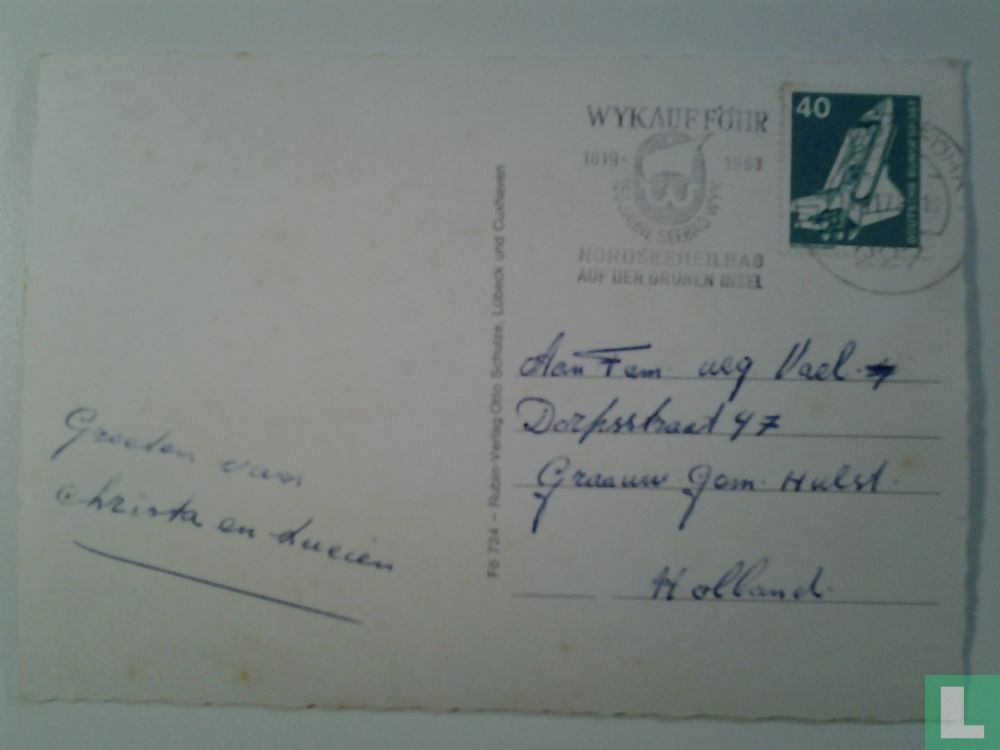 WYK AUF FÖHR
1819 - 1969
150 JAHRE SEEBAD WYK
NORDSEEHEILBAD
AUF DER GRÜNEN INSEL
40
DEUTSCHE BUNDESPOST
Fö 724 – Rubin-Verlag Otto Schulze, Lübeck und Cuxhaven
Groeten van
Christa en Lucien
Aan Fam. Weg Vael.
Dorpsstraat 47
Graauw Gem. Hulst.
Holland.
L